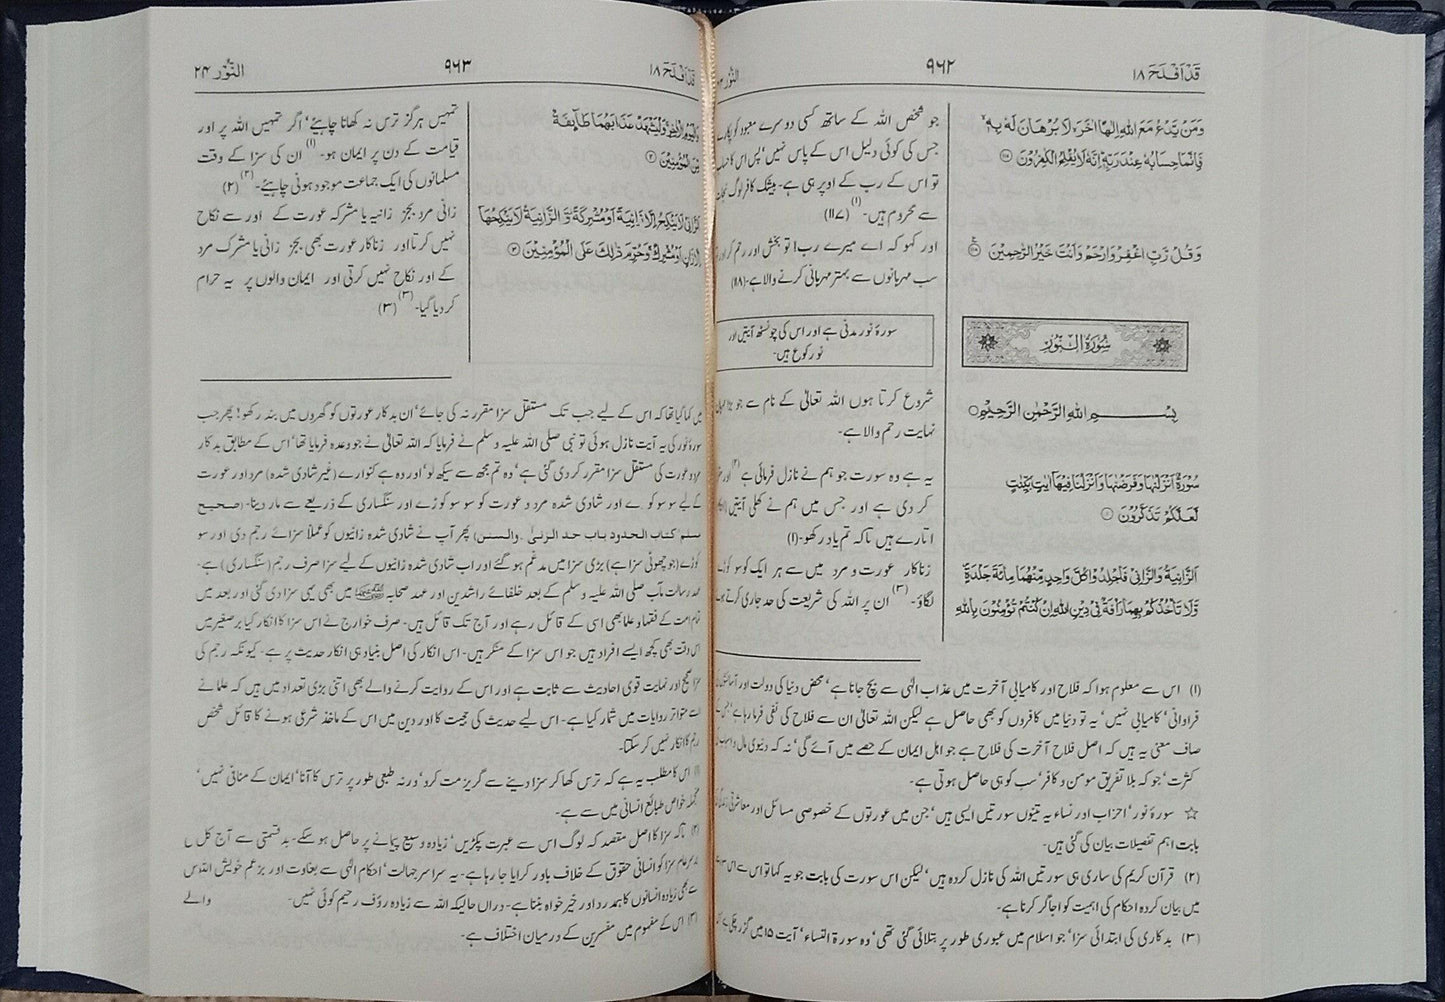 قد افلح ۱۸
۹۶۲
النور
وَمَنْ يَّدْعُ مَعَ اللّٰهِ اِلٰهًا اٰخَرَ لَا بُرْهَانَ لَهٗ بِهٖ
فَاِنَّمَا حِسَابُهٗ عِنْدَ رَبِّهٖ اِنَّهٗ لَا يُفْلِحُ الْكٰفِرُوْنَ
وَقُلْ رَّبِّ اغْفِرْ وَارْحَمْ وَاَنْتَ خَيْرُ الرّٰحِمِيْنَ
سُوْرَةُ النُّوْر
بِسْمِ اللّٰهِ الرَّحْمٰنِ الرَّحِيْمِ
سُوْرَةٌ اَنْزَلْنٰهَا وَفَرَضْنٰهَا وَاَنْزَلْنَا فِيْهَآ اٰيٰتٍۢ بَيِّنٰتٍ
لَّعَلَّكُمْ تَذَكَّرُوْنَ
اَلزَّانِيَةُ وَالزَّانِيْ فَاجْلِدُوْا كُلَّ وَاحِدٍ مِّنْهُمَا مِائَةَ جَلْدَةٍ
وَّلَا تَاْخُذْكُمْ بِهِمَا رَاْفَةٌ فِيْ دِيْنِ اللّٰهِ اِنْ كُنْتُمْ تُؤْمِنُوْنَ بِاللّٰهِ
جو شخص اللہ کے ساتھ کسی دوسرے معبود کو پکارے
جس کی کوئی دلیل اس کے پاس نہیں، پس اس کا حساب
تو اس کے رب کے اوپر ہی ہے۔ بیشک کافر لوگ نجات
سے محروم ہیں۔(۱) (۱۱۷)
اور کہو کہ اے میرے رب! تو بخش اور رحم کر اور تو
سب مہربانوں سے بہتر مہربانی کرنے والا ہے۔(۱۱۸)
سورۂ نور مدنی ہے اور اس کی چونسٹھ آیتیں اور
نو رکوع ہیں۔
شروع کرتا ہوں اللہ تعالیٰ کے نام سے جو بڑا مہربان
نہایت رحم والا ہے۔
یہ ہے وہ سورت جو ہم نے نازل فرمائی ہے(۲) اور
کر دی ہے اور جس میں ہم نے کھلی آیتیں
اتارے ہیں تاکہ تم یاد رکھو۔(۱)
زناکار عورت و مرد میں سے ہر ایک کو سو کوڑے
لگاؤ۔(۳) ان پر اللہ کی شریعت کی حد جاری کرتے ہوئے
(۱) اس سے معلوم ہوا کہ فلاح اور کامیابی آخرت میں عذاب الٰہی سے بچ جانا ہے، محض دنیا کی دولت اور آسائشوں کی
فراوانی، کامیابی نہیں، یہ تو دنیا میں کافروں کو بھی حاصل ہے لیکن اللہ تعالیٰ ان سے فلاح کی نفی فرما رہا ہے، جس کے
صاف معنی یہ ہیں کہ اصل فلاح آخرت کی فلاح ہے جو اہل ایمان کے حصے میں آئے گی، نہ کہ دنیوی مال و اسباب کی
کثرت، جو کہ بلا تفریق مومن و کافر، سب کو ہی حاصل ہوتی ہے۔
☆ سورۂ نور، احزاب اور نساء یہ تینوں سورتیں ایسی ہیں، جن میں عورتوں کے خصوصی مسائل اور معاشرتی زندگی کی
بابت اہم تفصیلات بیان کی گئی ہیں۔
(۲) قرآن کریم کی ساری ہی سورتیں اللہ کی نازل کردہ ہیں، لیکن اس سورت کی بابت جو یہ کہا تو اس سے اس
میں بیان کردہ احکام کی اہمیت کو اجاگر کرنا ہے۔
(۳) بدکاری کی ابتدائی سزا، جو اسلام میں عبوری طور پر بتلائی گئی تھی، وہ سورۃ النساء، آیت ۱۵ میں گزر چکی ہے
قد افلح ۱۸
۹۶۳
النور ۲۴
وَالْيَوْمِ الْاٰخِرِ وَلْيَشْهَدْ عَذَابَهُمَا طَآئِفَةٌ
مِّنَ الْمُؤْمِنِيْنَ ۲
اَلزَّانِيْ لَا يَنْكِحُ اِلَّا زَانِيَةً اَوْ مُشْرِكَةً وَّالزَّانِيَةُ لَا يَنْكِحُهَآ
اِلَّا زَانٍ اَوْ مُشْرِكٌ وَحُرِّمَ ذٰلِكَ عَلَى الْمُؤْمِنِيْنَ ۳
تمہیں ہرگز ترس نہ کھانا چاہیئے، اگر تمہیں اللہ پر اور
قیامت کے دن پر ایمان ہو۔(۱) ان کی سزا کے وقت
مسلمانوں کی ایک جماعت موجود ہونی چاہیئے۔(۲) (۲)
زانی مرد بجز زانیہ یا مشرکہ عورت کے اور سے نکاح
نہیں کرتا اور زناکار عورت بھی بجز زانی یا مشرک مرد
کے اور نکاح نہیں کرتی اور ایمان والوں پر یہ حرام
کر دیا گیا۔(۳) (۳)
میں کہا گیا تھا کہ اس کے لیے جب تک مستقل سزا مقرر نہ کی جائے، ان بدکار عورتوں کو گھروں میں بند رکھو! پھر جب
سورۂ نور کی یہ آیت نازل ہوئی تو نبی صلی اللہ علیہ وسلم نے فرمایا کہ اللہ تعالیٰ نے جو وعدہ فرمایا تھا، اس کے مطابق بدکار
مرد و عورت کی مستقل سزا مقرر کر دی گئی ہے، وہ تم مجھ سے سیکھ لو، اور وہ ہے کنوارے (غیر شادی شدہ) مرد اور عورت
کے لیے سو سو کوڑے اور شادی شدہ مرد و عورت کو سو سو کوڑے اور سنگساری کے ذریعے سے مار دینا۔ (صحیح
مسلم کتاب الحدود باب حد الزنیٰ۔ والسنن) پھر آپ نے شادی شدہ زانیوں کو عملاً سزائے رجم دی اور سو
کوڑے (جو چھوٹی سزا ہے) بڑی سزا میں مدغم ہو گئے اور اب شادی شدہ زانیوں کے لیے سزا صرف رجم (سنگساری) ہے۔
عہد رسالت مآب صلی اللہ علیہ وسلم کے بعد خلفائے راشدین اور عہد صحابہ میں بھی یہی سزا دی گئی اور بعد میں
تمام امت کے فقہا و علما بھی اسی کے قائل رہے اور آج تک قائل ہیں۔ صرف خوارج نے اس سزا کا انکار کیا برصغیر میں
اس وقت بھی کچھ ایسے افراد ہیں جو اس سزا کے منکر ہیں۔ اس انکار کی اصل بنیاد ہی انکار حدیث پر ہے۔ کیونکہ رجم کی
سزا صحیح اور نہایت قوی احادیث سے ثابت ہے اور اس کے روایت کرنے والے بھی اتنی بڑی تعداد میں ہیں کہ علما نے
اسے متواتر روایات میں شمار کیا ہے۔ اس لیے حدیث کی حجیت کا اور دین میں اس کے ماخذ شرعی ہونے کا قائل شخص
رجم کا انکار نہیں کر سکتا۔
(۱) اس کا مطلب یہ ہے کہ ترس کھا کر سزا دینے سے گریز مت کرو، ورنہ طبعی طور پر ترس کا آنا، ایمان کے منافی نہیں،
منجملہ خواص طبائع انسانی میں سے ہے۔
(۲) تاکہ سزا کا اصل مقصد کہ لوگ اس سے عبرت پکڑیں، زیادہ وسیع پیمانے پر حاصل ہو سکے۔ بدقسمتی سے آج کل
برسرعام سزا کو انسانی حقوق کے خلاف باور کرایا جا رہا ہے۔ یہ سراسر جہالت، احکام الٰہی سے بغاوت اور بزعم خویش اللہ
سے بھی زیادہ انسانوں کا ہمدرد اور خیر خواہ بننا ہے۔ دراں حالیکہ اللہ سے زیادہ رؤف رحیم کوئی نہیں۔ والے
(۳) اس کے مفہوم میں مفسرین کے درمیان اختلاف ہے۔